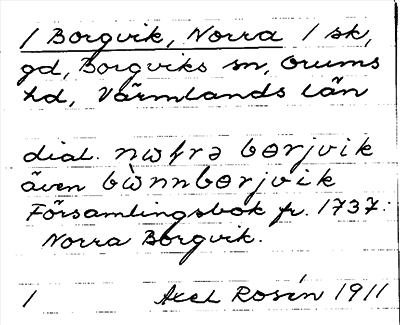 1 Borgvik, Norra 1 sk,
gd, Borgviks sn, Grums
hd, Värmlands län
dial. nωɾrə bɵrjvik
även bὼnnbɵrjvik
Församlingsbok fr. 1737:
Norra Borgvik.
1 Axel Rosén 1911